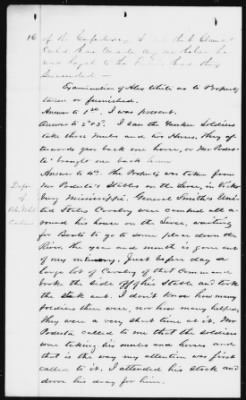 16
of the Confederacy,
he
was loyal to the
Surrended —
Examination of Alex White as to Property
taken or furnished.
Answer to 1st, I was present.
Answer to 2 & 3d, I saw the Yankee Soldiers
take three mules and six Horses, they af-
terwards gave back one horse, or Mr Podes-
ta brought one back home
Answer to 4th The Property was taken from
Mr Podesta's Stables on the levee, in Vicks-
burg Mississippi, General Smiths Uni-
ted States Cavalry were camped all a-
round his house on the levee, waiting
for Boats to go to some place down the
River. the year and month is gone out
of my memory, Just before day a
large lot of Cavalry of that Command
broke the side off of his Stable and took
the Stock out. I don't know how many
soldiers there were, nor how many helped,
they were a very short time at it. Mr
Podesta called to me that the soldiers
were taking his mules and horses and
that is the way my attention was first
called to it. I attended his stock and
drove his dray for him.
Depo
of